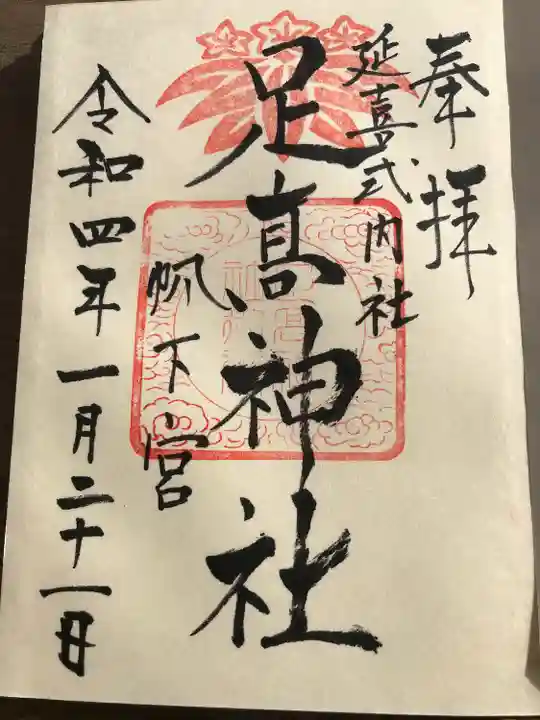 奉拝
延喜式内社
足髙神社
帆下宮
令和四年一月二十一日